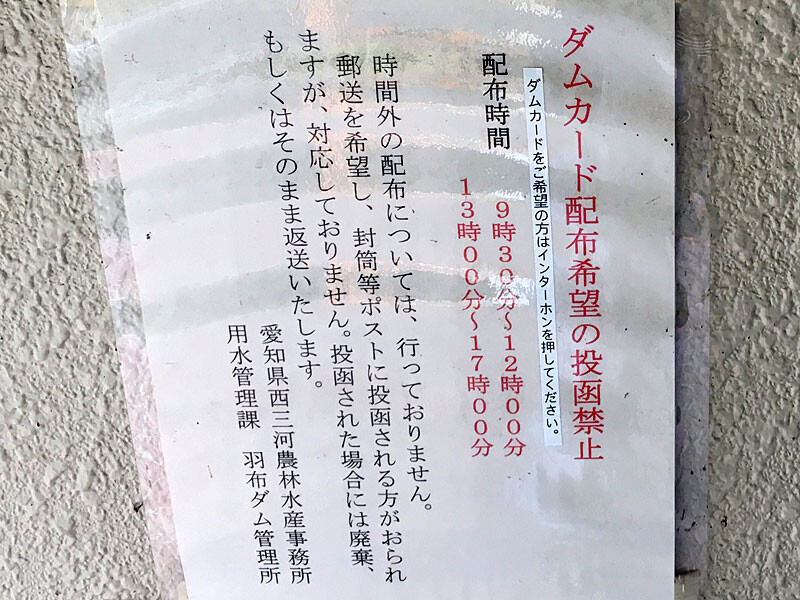 ダムカード配布希望の投函禁止
ダムカードをご希望の方はインターホンを押してください。
配布時間
9時30分~12時00分
13時00分~17時00分
時間外の配布については、行っておりません。
郵送を希望し、封筒等ポストに投函される方がおられ
ますが、対応しておりません。投函された場合には廃棄、
もしくはそのまま返送いたします。
愛知県西三河農林水産事務所
用水管理課 羽布ダム管理所